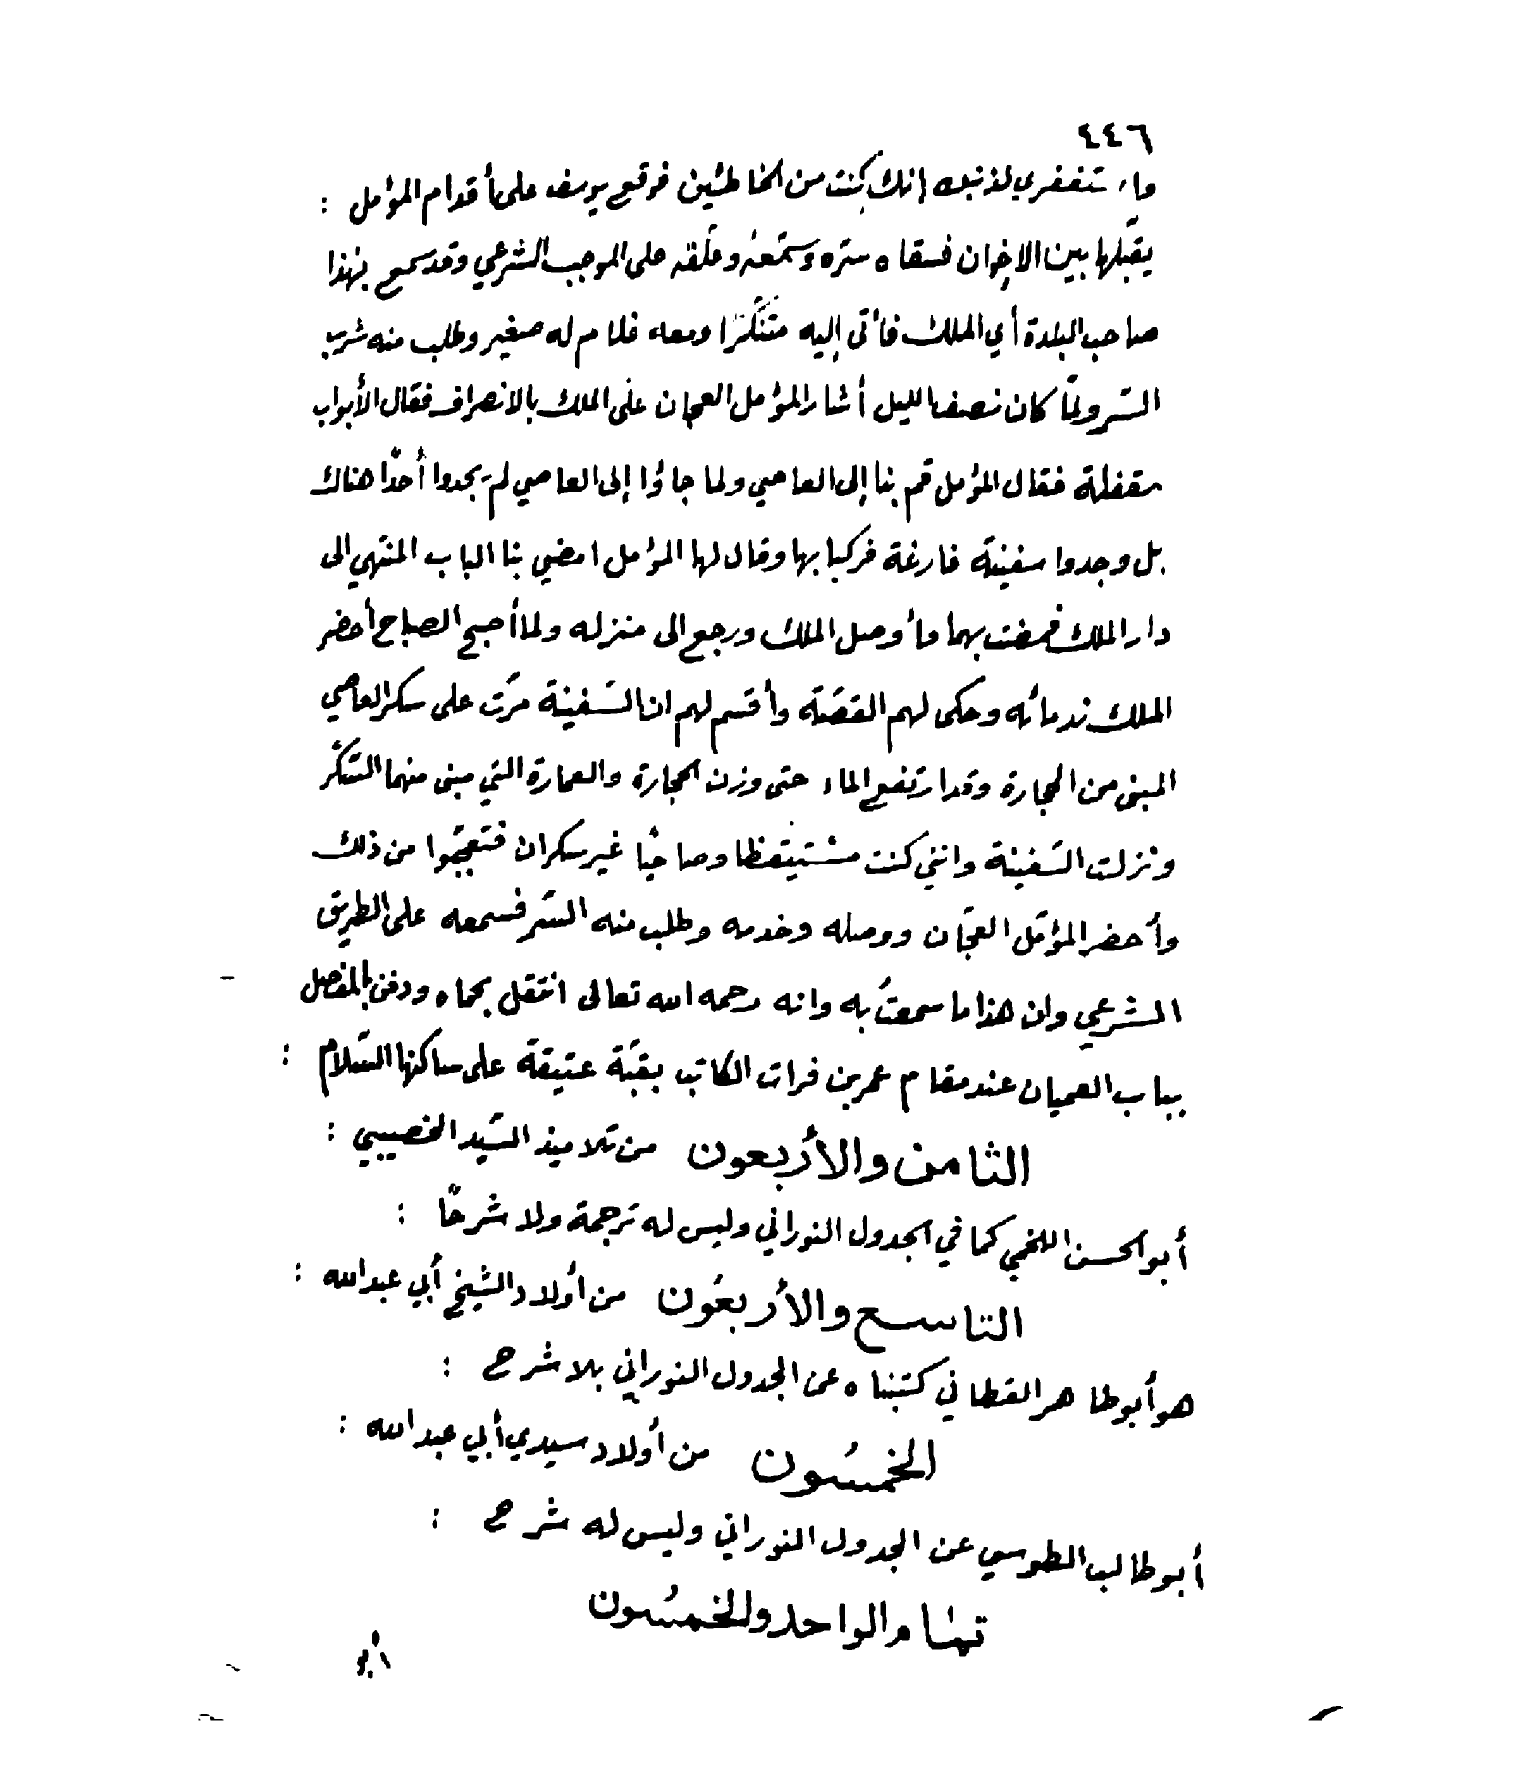 ٤٤٦
واستغفري لذنبك إنك كنت من الخاطئين فوقع يوسف على أقدام المؤمل :
يقبّلها بين الاخوان فسقاه ستره وسمّعه وعلّقه على الموجب الشرعي وقد سمع بهذا
صاحب البلدة أي الملك فأتى إليه متنكّرًا ومعه غلام له صغير وطلب منه شرب
السّر ولمّا كان نصف الليل أشار المؤمل العجان على الملك بالانصراف فقال الأبواب
مقفلة فقال المؤمل قم بنا إلى العاصي ولما جاؤا إلى العاصي لم يجدوا أحدًا هناك
بل وجدوا سفينة فارغة فركبا بها وقال لها المؤمل امضي بنا الباب المنتهي الى
دار الملك فمضت بهما وأوصل الملك ورجع الى منزله ولما أصبح الصباح أحضر
الملك ندمائه وحكى لهم القصّة وأقسم لهم ان السّفينة مرّت على سكر العاصي
المبني من الحجارة وقد ارتفع الماء حتى وزن الحجارة والعمارة التي مبنى منهما السّكر
ونزلت السّفينة وانني كنت مستيقظا وصاحيًا غير سكران فتعجّبوا من ذلك
وأحضر المؤمّل العجّان ووصله وخدمه وطلب منه السّر فسمعه على الطريق
الشرعي وان هذا ما سمعتُ به وانه رحمه الله تعالى انتقل بحماه ودفن بالمفصل
بباب العميان عند مقام عمر بن فرات الكاتب بقبّة عتيقة على ساكنها السّلام :
الثامن والأربعون من تلاميذ السّيد الخصيبي :
أبو الحسن اللخمي كما في الجدول النوراني وليس له ترجمة ولا شرحًا :
التاسع والأربعون من أولاد الشيخ أبي عبد الله :
هو أبو طاهر القطاني كتبناه عن الجدول النوراني بلا شرح :
الخمسون من أولاد سيدي أبي عبد الله :
أبو طالب الطوسي عن الجدول النوراني وليس له شرح :
تمام الواحد والخمسون
أبو